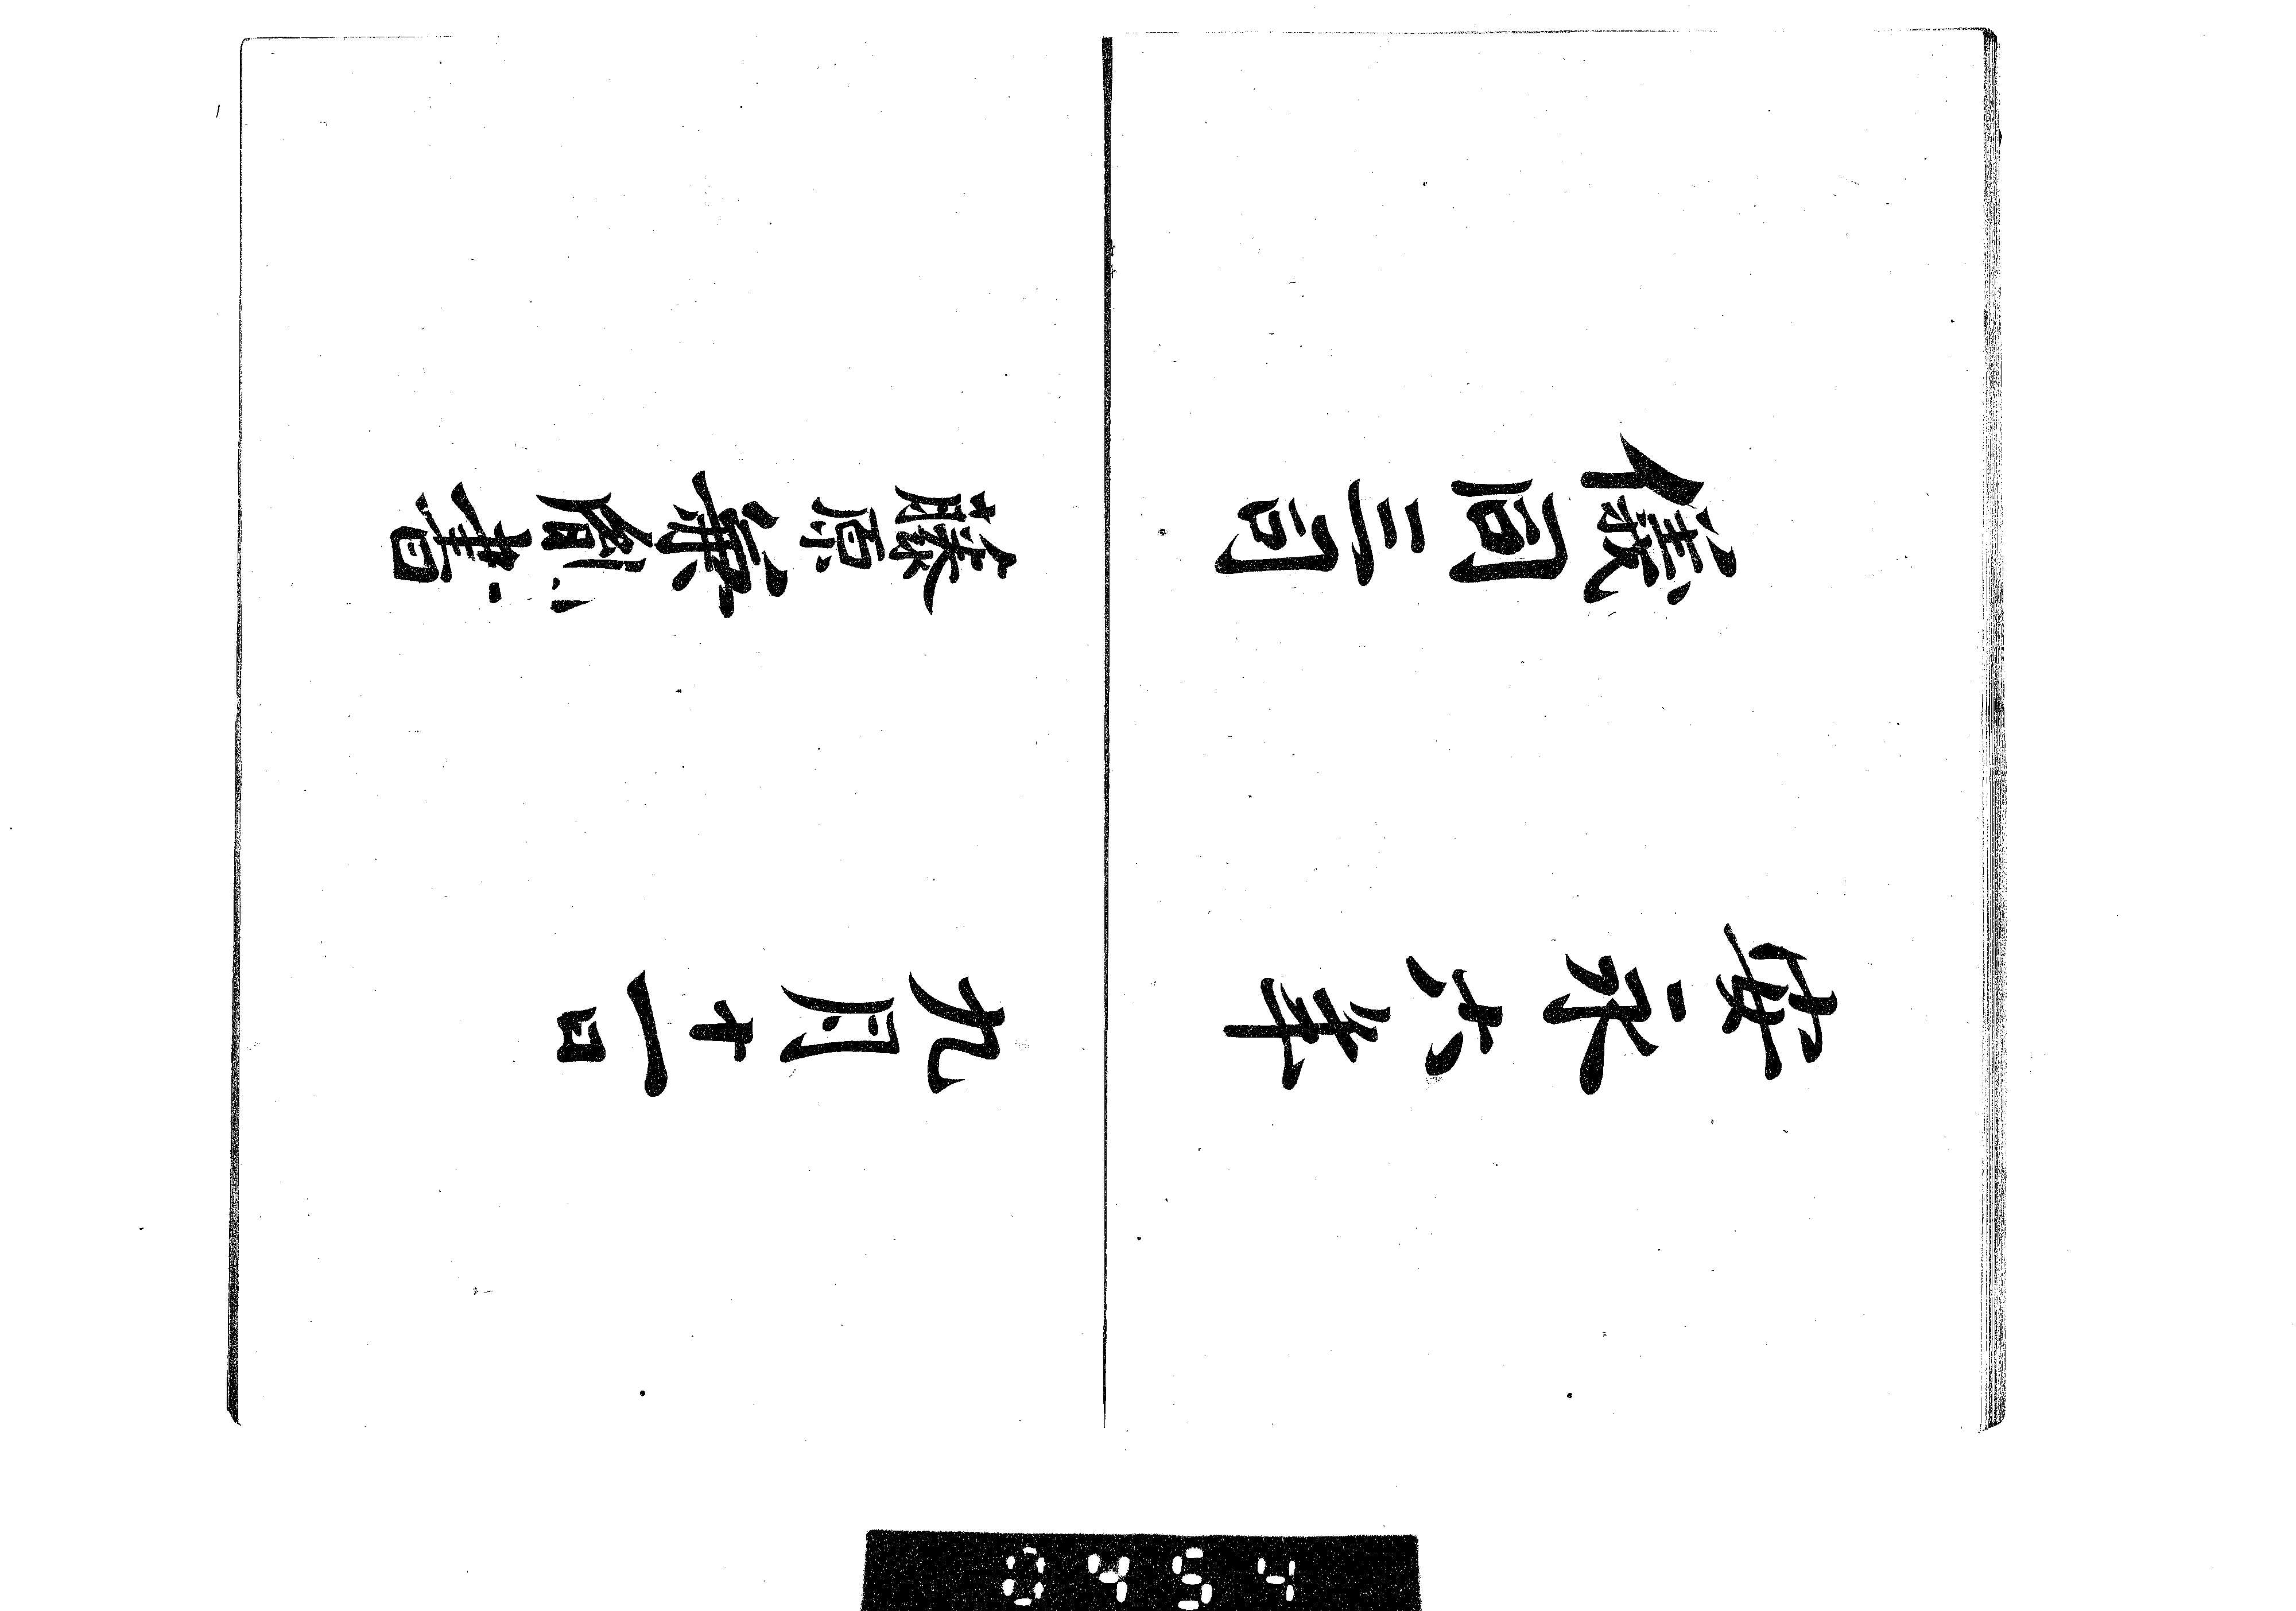 安永六年九月十一日
儀同三司藤原兼胤書
0454